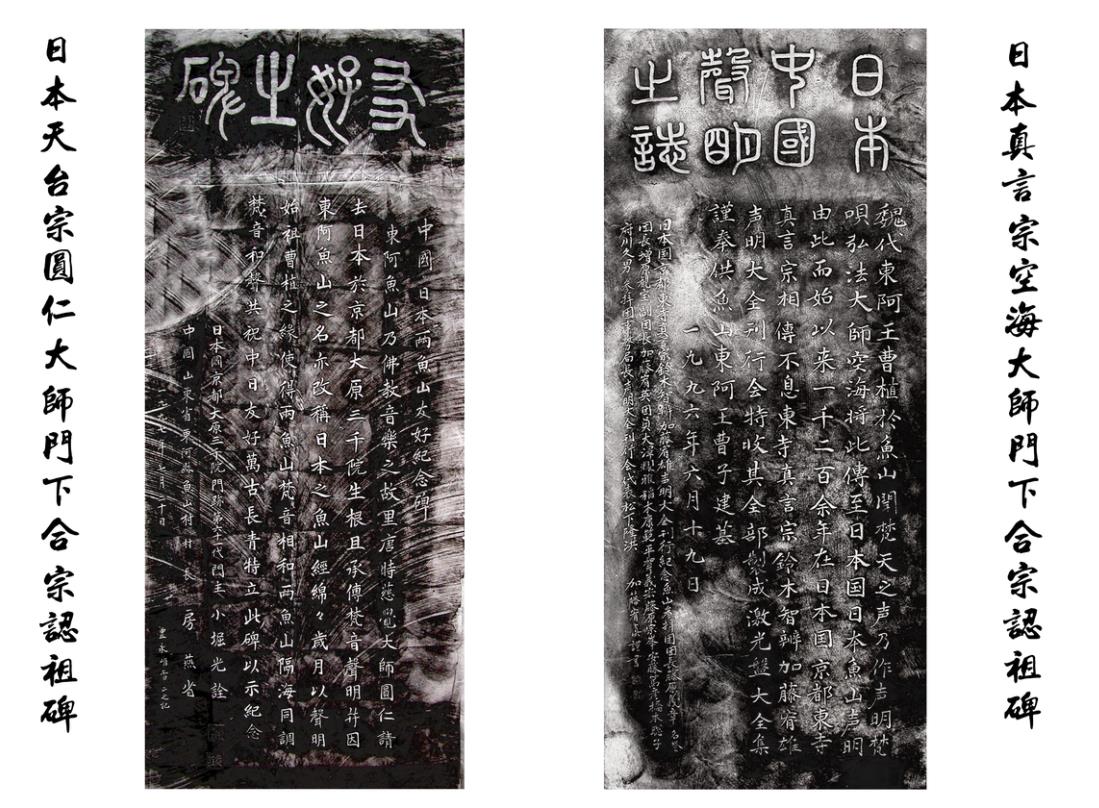 日本真言宗空海大師門下合宗認祖碑
日本
中國
聲明
之誌
魏代東阿王曹植於魚山聞梵天之声乃作声明梵
唄弘法大師空海将此傳至日本国日本魚山声明
由此而始以来一千二百余年在日本国京都東寺
真言宗相傳不息東寺真言宗鈴木智辯加藤宥雄
声明大全刊行会特收其全部製成激光盤大全集
謹奉供魚山東阿王曹子建墓
一九九六年六月十九日
日本国京都東寺真言宗鈴木智辯加藤宥雄声明大全刊行紀念魚山
団長
友好之碑
中國日本兩魚山友好紀念碑
東阿魚山乃佛教音樂之故里唐時慈覺大師圓仁請
去日本於京都大原三千院生根且承傳梵音聲明并因
東阿魚山之名亦改稱日本之魚山經綿々歲月以聲明
始祖曹植之緣使得兩魚山梵音相和兩魚山隔海同調
梵音和聲共祝中日友好萬古長青特立此碑以示紀念
日本國京都大原三千院門跡第六十一代門主小堀光詮
中國山東省東阿縣魚山村村長房燕省
日本天台宗圓仁大師門下合宗認祖碑